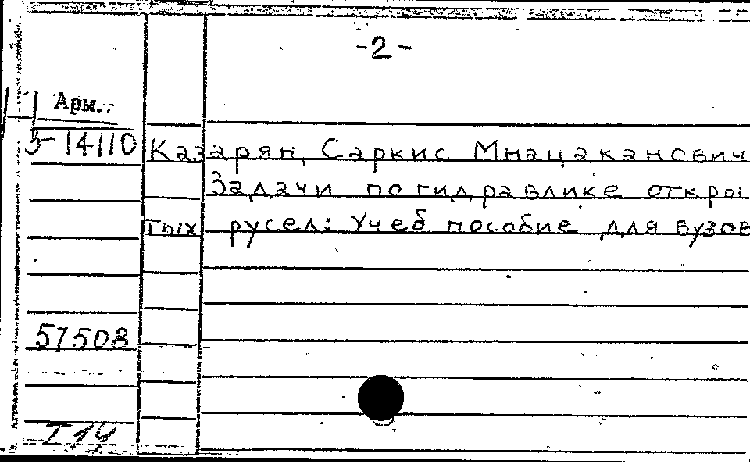 -2-
Арм.
5-14110
Казарян, Саркис Мнацаканович
Задачи по гидравлике откры
тых русел: Учеб пособие для вузов
57508
I 14